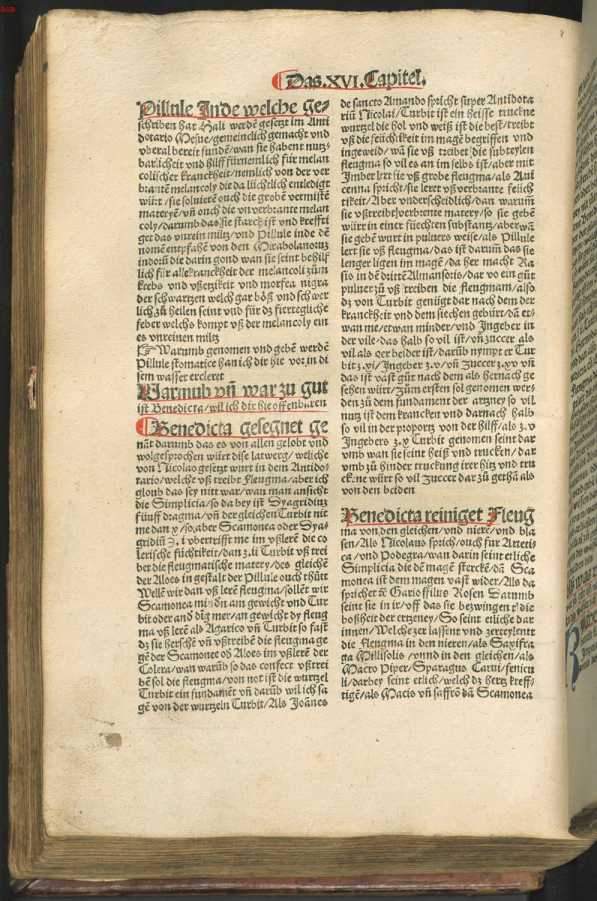 Das .XVI. Capitel.
Pillule Inde welche ge-
schriben hat Hali werdē gesetzt im Anti
dotario Mesue/gemeinclich gemacht vnd
vberal bereit fundē/wan sie habent nutz-
barlicheit vnd hilff fürnemlich für melan
colischer kranckheit/nemlich von der ver
brante melancoly die da liechtlich entledigt
würt/sie soluierē ouch die grobē vermistē
materyen/vn̄ ouch die vnverbrante melan
coly/darumb das sie starck ist vnd krefftī
get das vnrein miltz/vnd Pillule inde dē
nomē entpfahē von den Mirabolanorum
indorū die darin gond wan sie seint behilf
lich für alle kranckheit der melancoli zūm
krebs vnd vßetzikeit vnd morfea nigra
der schwartzen welch gar böß vnd schwer
lich zū heilen seint vnd für dz fiertegliche
feber welchs kompt vß der melancoly ein
es vnreinen miltz
Warumb genomen vnd gebē werdē
Pillule stomatice han ich dir hie vor in di
sem wasser ercleret
Warumb vn̄ war zu gut
ist Benedicta/wil ich dir hie offenbaren
Benedicta gesegnet ge
nāt darumb das es von allen gelobt vnd
wolgesprochen würt dise latwerg/welche
von Nicolao gesetzt wurt in dem Antido-
tario/welche vß treibt fleugma/aber ich
gloub das sey nitt war/wan man ansicht
die Simplicia/so da bey ist Dyagridiuȝ
fünff dragma/vn̄ der gleichen Turbit nit
me dan x/so aber Scamonea oder Dya-
gridiū ʒ.i vbertrifft me im vßlerē die co
lerische füchtikeit/dan ʒ.ii Turbit vß trei
ber die fleugmatische matery/des gleichē
der Aloes in gestalt der Pillule ouch thūtt
Wellē wir dan vß lerē fleugma/sollēt wir
Scamonea mindn am gewicht vnd Tur
bit oder and dīg mer/an gewicht dy fleug
ma vß lerē als Agarico vn̄ Turbit so fast
dz sie herschē vn̄ vßtreibē die fleugma ge
gē der Scamonee oh Aloes im vßlerē der
Colera/wan warūb so das confect vßtrei
bē sol die fleugma/von not ist die wurtzel
Turbit ein fundamēt vn̄ darūb wil ich sa
gē von der wurtzeln Turbit/Als Joānes
de sancto Amando spricht super Antidota
riū Nicolai/Turbit ist ein heisse truckne
wurtzel die hol vnd weiß ist die best/treibt
vß die feüchtikeit im magē begriffen vnd
ingeweid/wā sie vß treibet die subteylen
fleugma so vil es an im selbs ist/aber mit
Imber lert sie vß grobe fleugma/als Aui
cenna spricht/sie leret vß verbrante feüch
tikeit/Aber vnderscheidlich/dan warum
sie vßtreibt verbrente matery/so sie gebē
würt in einer füechten substantz/aber wā
sie gebē wurt in puluers weise/als Pillule
lert sie vß fleugma/das ist darum das sie
lenger ligen im magē/da her macht Ra
sis in dē drittē Almansoris/dar vo ein gūt
puluer zū vß treiben die fleugmam/also
dz von Turbit genügt dar nach dem der
kranckheit vnd dem siechen gebürt/dā et-
wan me/etwan minder/vnd Ingeber in
der vile/das halb so vil ist/vn̄ zuccer als
vil als der beider ist/darūb nympt er Tur
bit ʒ.xi/Ingeber ʒ.v/vn̄ Zuccer ʒ.xv vn̄
das ist vast gūt nach dem als hernach ge
sehen würt/Zūm ersten sol genomen wer-
den zū dem fundament der artzney so vil
nutz ist dem krancken vnd darnach halb
so vil in der proportz von der hilff/als ʒ.v
Ingebers ʒ.x Turbit genomen seint dar
vmb wan sie seint heiß vnd trucken/dar
vmb zū hinder truckung irer hitz vnd tru
ckēne würt so vil zuccer dar zū gethā als
von den beiden
Benedicta reiniget Fleug
ma von den gleichen/vnd nierē/vnd bla
sen/Als Nicolaus sprich/ouch für Arteti
ca/vnd Podegra/wan darin seint etliche
Simplicia die dē magē sterckē/dā Sca
monea ist dem magen vast wider/Als da
spricher Gario ffilus Rosen Darumb
seint sie in ir/off das sie bezwingen die
boßheit der ertzeney/So seint etliche dar
innen/Welche zer lassent vnd zerteylent
die fleugma in den nieren/als Saxifra
ga Millisolis/vnnd in den gleichen/als
Macro Piper/Sparagus Carui/fenicu
li/darbey seint etlich/welch dz hertz kreff-
tigē/als Macis vn̄ saffrō dā Scamonea